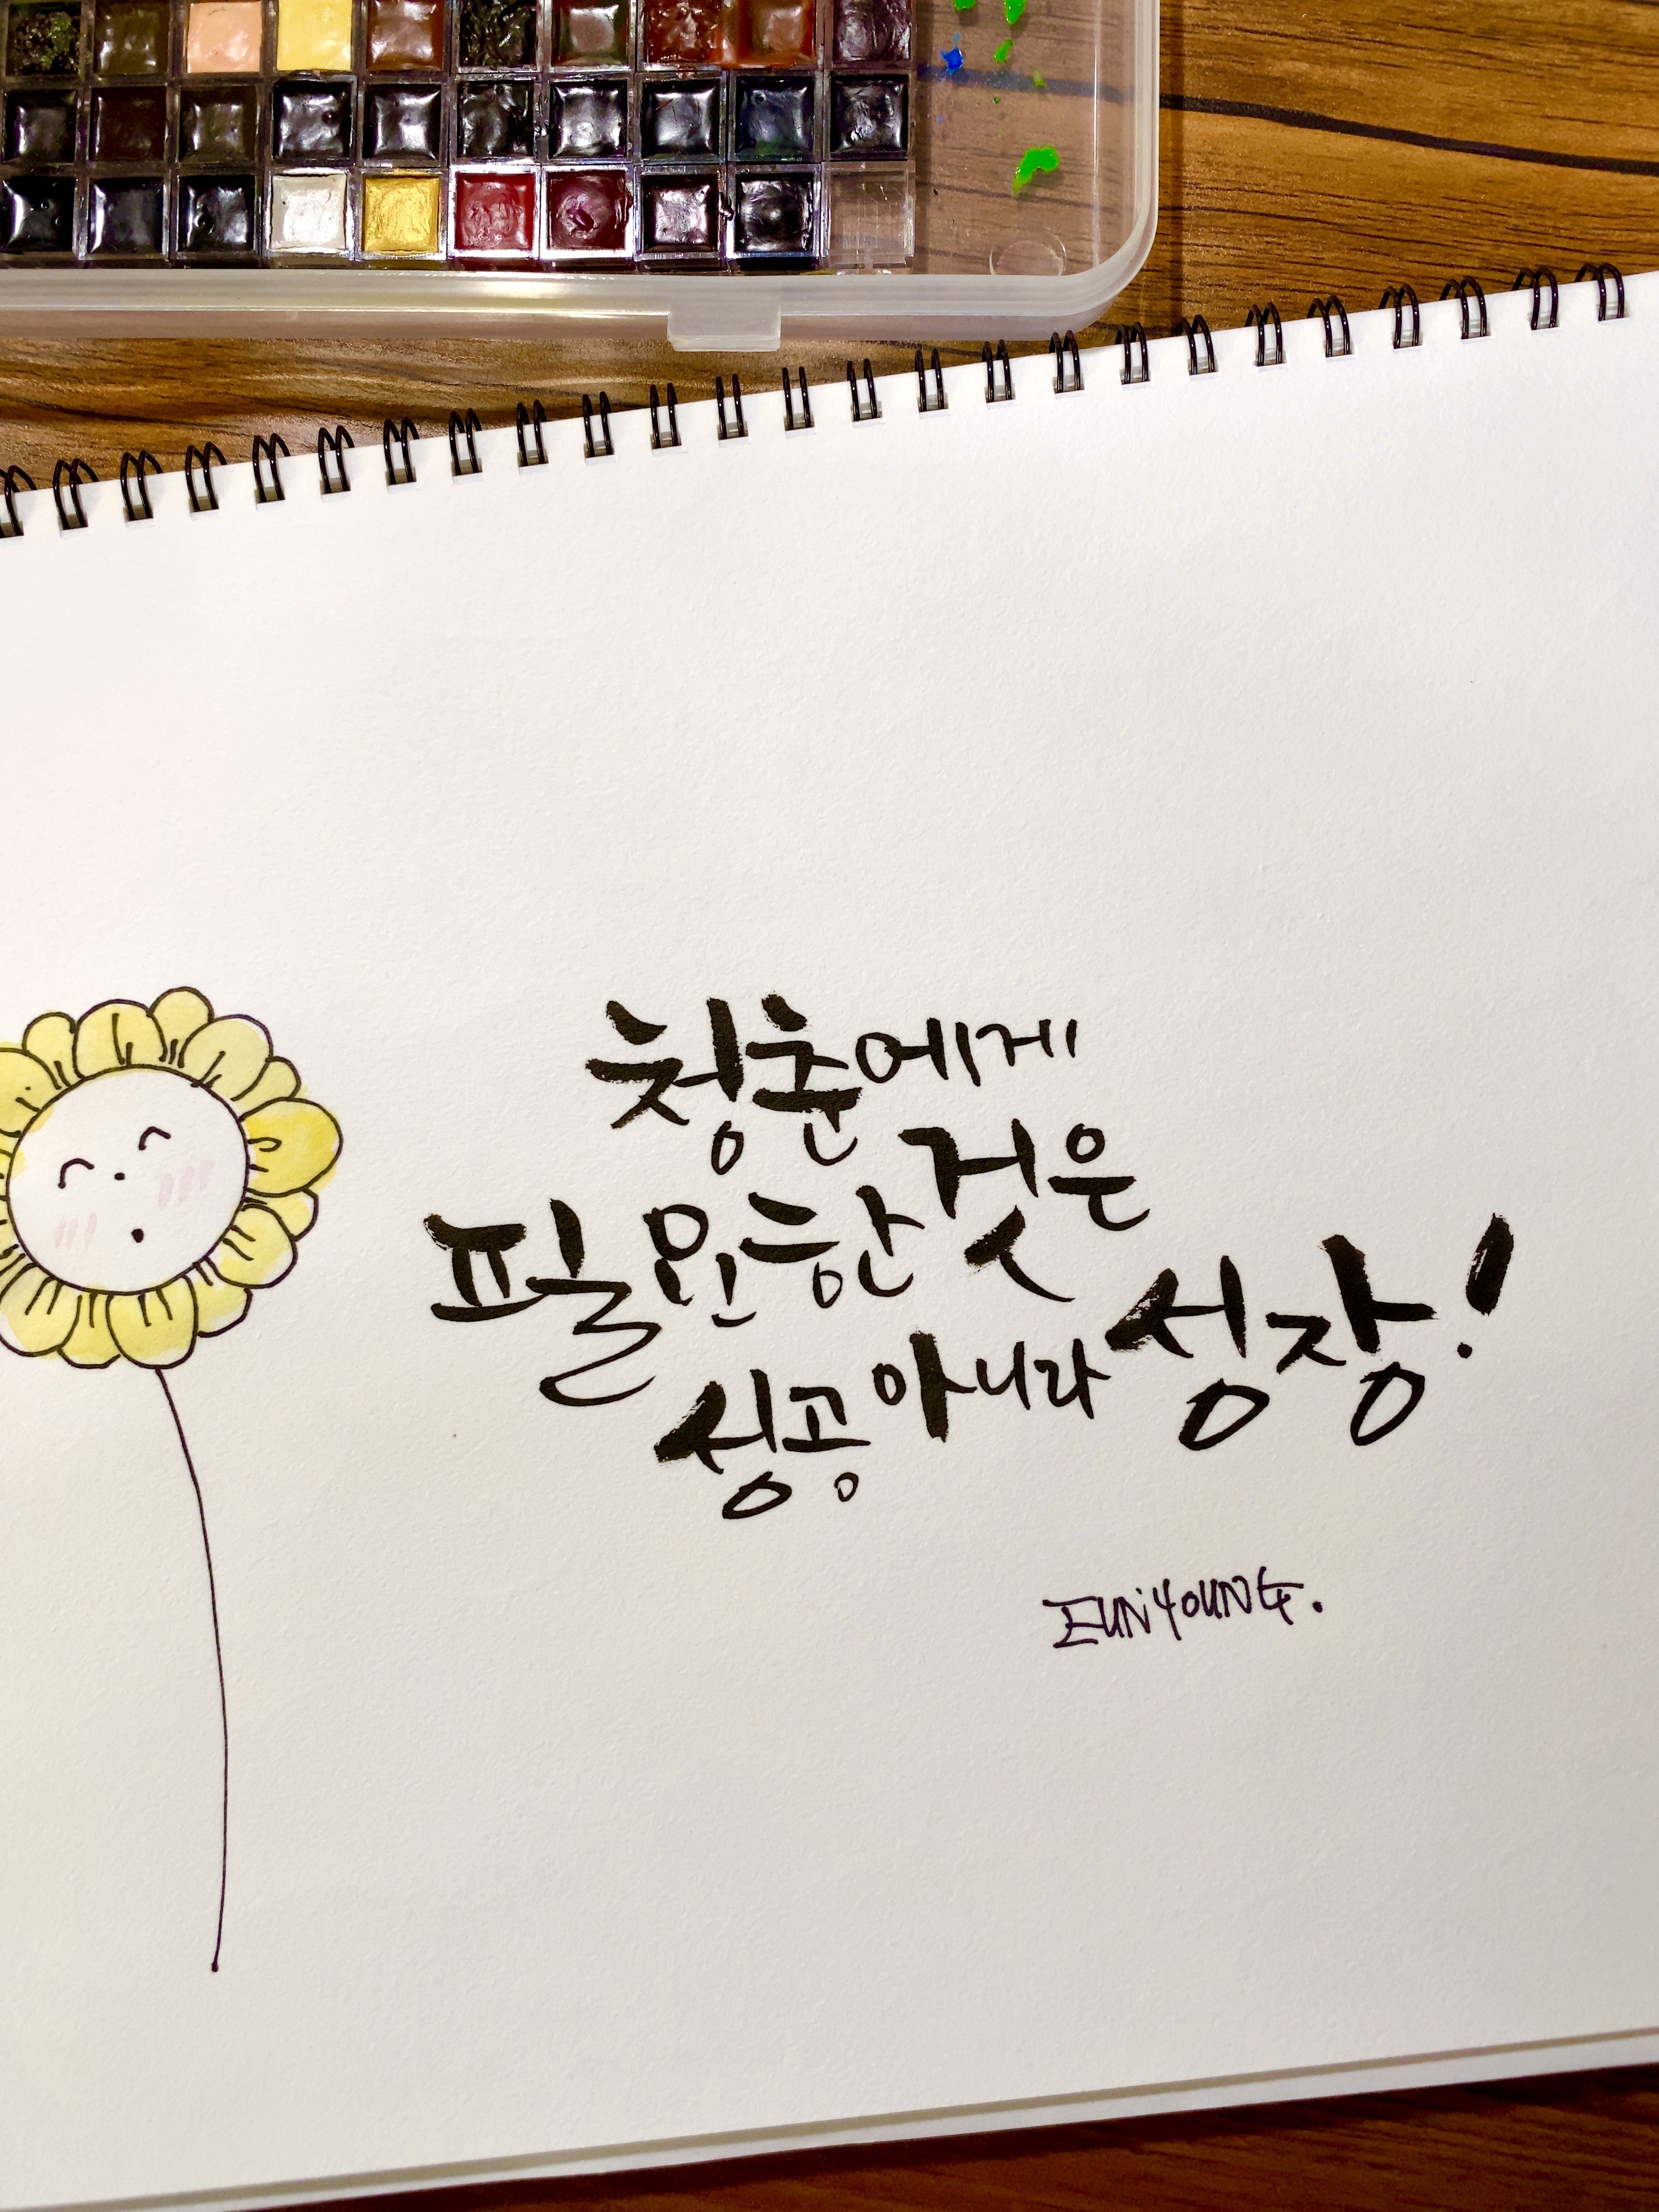 청춘에게
필요한 것은
성공 아니라 성장!
EUNYOUNG.